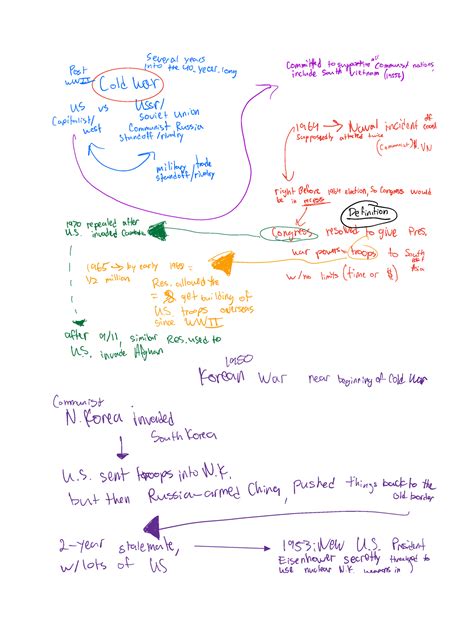 Post
WWII
Cold War
several years
into the 40-year-long
US vs USSR/
Capitalist/
west
Soviet Union
Communist Russia
standoff/rivalry
military/trade
standoff/rivalry
Committed to supportive all Communist nations
include South Vietnam (1955)
1964 → Naval incident off coast
supposedly attacked twice
(Communist) N. VN
right before 1964 election, so Congress would
be in recess
Definition
Congress resolved to give Pres.
war powers troops to South
east
Asia
w/no limits (time or $)
1970 repealed after
U.S. invaded Cambodia
1965 → by early 1968 =
1/2 million
Res. allowed the
= get building of
US troops overseas
since WWII
after 9/11, similar Res. used to
U.S. invade Afghan
1950
Korean War near beginning of Cold War
Communist
N. Korea invaded
South Korea
U.S. sent troops into N.K.
but then Russia-armed China, pushed things back to the
old border
2-year stalemate,
w/lots of US
1953: New U.S. President
Eisenhower secretly threatened to
use nuclear N.K. weapons in